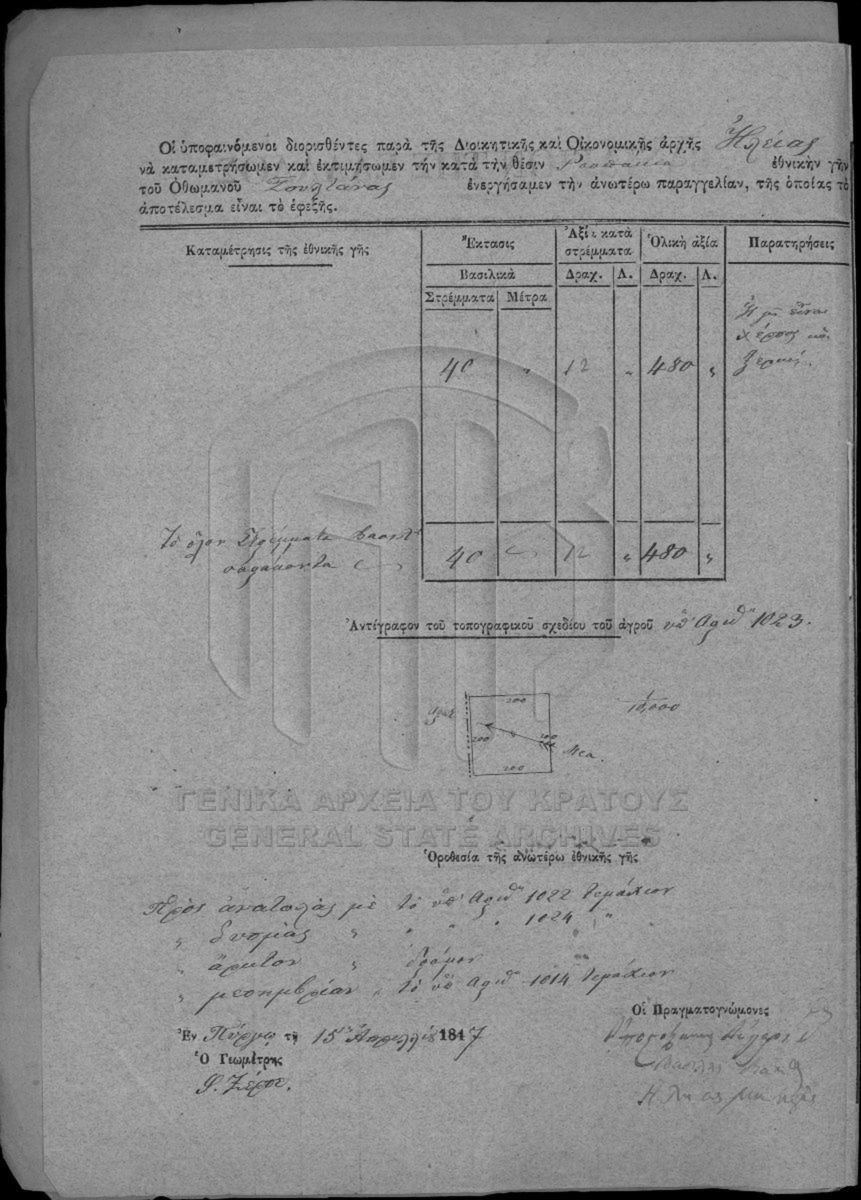 Οἱ ὑποφαινόμενοι διορισθέντες παρὰ τῆς Διοικητικῆς καὶ Οἰκονομικῆς ἀρχῆς Ἠλείας
νὰ καταμετρήσωμεν καὶ ἐκτιμήσωμεν τὴν κατὰ τὴν θέσιν ἐθνικὴν γῆν
τοῦ Ὀθωμανοῦ Σουλτάνας ἐνεργήσαμεν τὴν ἀνωτέρω παραγγελίαν, τῆς ὁποίας τὸ
ἀποτέλεσμα εἶναι τὸ ἑφεξῆς.
Καταμέτρησις τῆς ἐθνικῆς γῆς
Ἔκτασις
Ἀξία κατὰ στρέμματα
Ὁλικὴ ἀξία
Παρατηρήσεις
Βασιλικὰ
Δραχ. Λ. Δραχ. Λ.
Στρέμματα Μέτρα
Ἡ γῆ εἶναι
χέρσος καὶ
ξερική.
40 " 12 " 480 "
Τὸ ὅλον Στρέμματα βασιλ
σαράκοντα
40 12 " 480 "
Ἀντίγραφον τοῦ τοπογραφικοῦ σχεδίου τοῦ ἀγροῦ ὑπ' Ἀριθ 1023.
200
1/10,000
200
200
Μεσ.
200
ΓΕΝΙΚΑ ΑΡΧΕΙΑ ΤΟΥ ΚΡΑΤΟΥΣ
GENERAL STATE ARCHIVES
Ὁροθεσία τῆς ἀνωτέρω ἐθνικῆς γῆς
Πρὸς ἀνατολὰς μὲ τὸ ὑπ' Ἀριθ 1022 τεμάχιον
" δυσμὰς " " " " 1024 " "
" ἄρκτον " δρόμον
" μεσημβρίαν " τὸ ὑπ' Ἀριθ 1014 τεμάχιον
Οἱ Πραγματογνώμονες
Ἐν Πύργῳ τῇ 15 Ἀπριλλίου 1847
Ὁ Γεωμέτρης